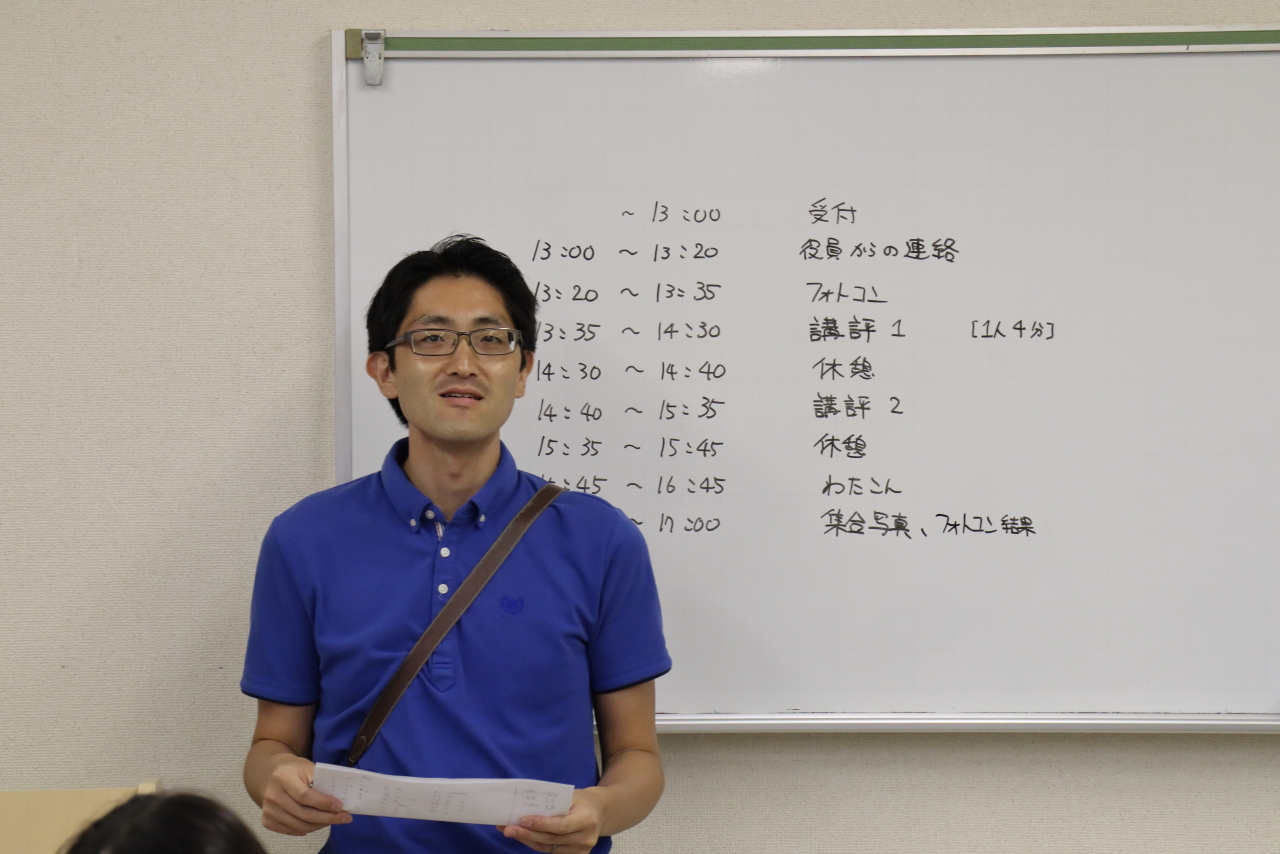 ～ 13:00 受付
13:00 ～ 13:20 役員からの連絡
13:20 ～ 13:35 フォトコン
13:35 ～ 14:30 講評 1 [1人4分]
14:30 ～ 14:40 休憩
14:40 ～ 15:35 講評 2
15:35 ～ 15:45 休憩
:45 ～ 16:45 わたこん
～ 17:00 集合写真、フォトコン結果